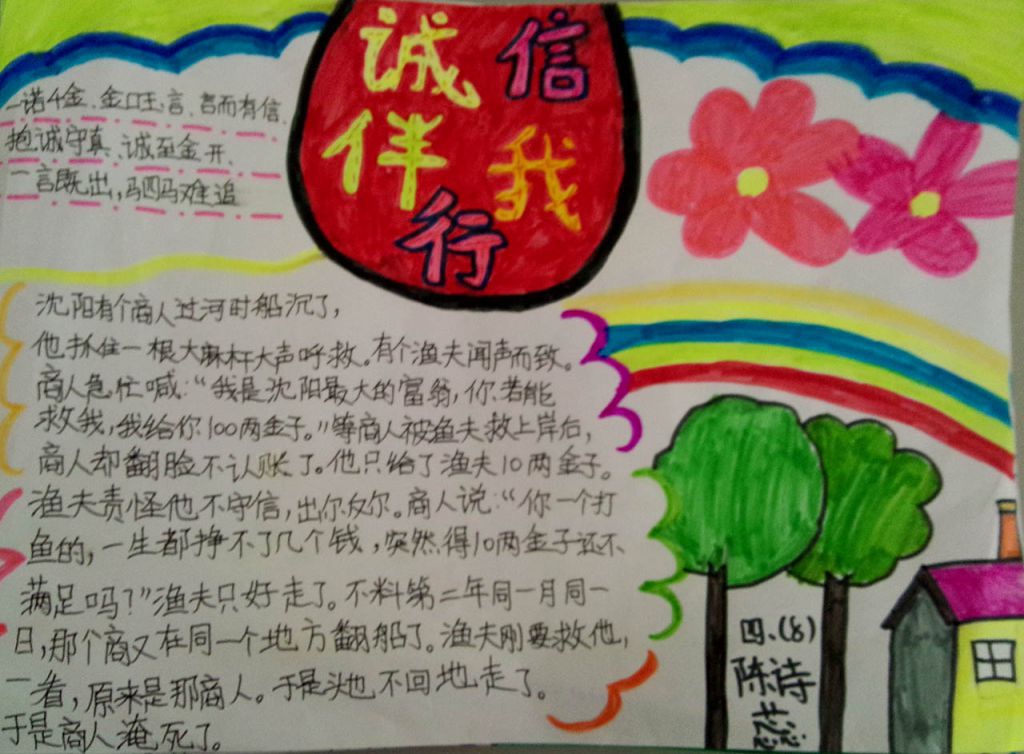 诚信
伴我
行
一诺千金、金口玉言、言而有信、
抱诚守真、诚至金开、
一言既出，驷马难追
沈阳有个商人过河时船沉了，
他抓住一根大麻杆大声呼救。有个渔夫闻声而致。
商人急忙喊：“我是沈阳最大的富翁，你若能
救我，我给你100两金子。”等商人被渔夫救上岸后，
商人却翻脸不认账了。他只给了渔夫10两金子。
渔夫责怪他不守信，出尔反尔。商人说：“你一个打
鱼的，一生都挣不了几个钱，突然得10两金子还不
满足吗？”渔夫只好走了。不料第二年同一月同一
日，那个商又在同一个地方翻船了。渔夫刚要救他，
一看，原来是那商人。于是头也不回地走了。
于是商人淹死了。
四、(8)
陈诗